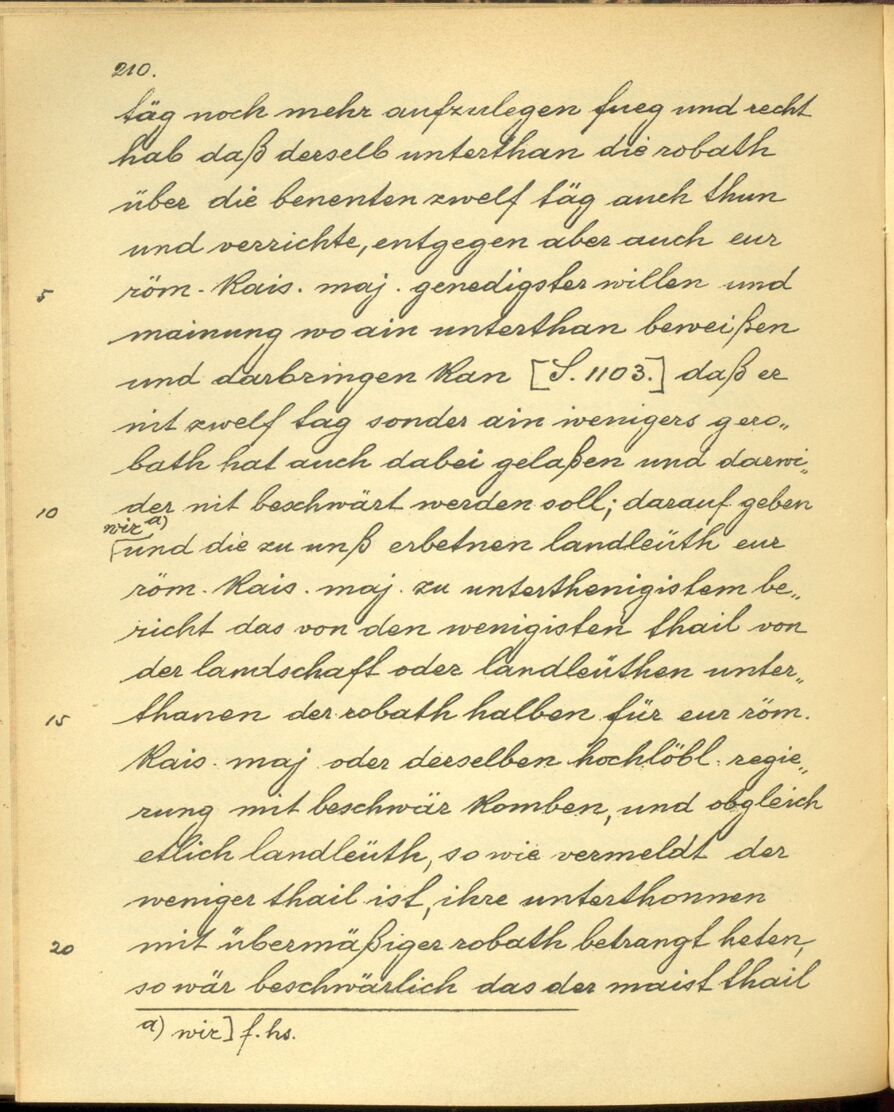 210.
täg noch mehr aufzulegen fueg und recht
hab daß derselb unterthan die robath
über die benenten zwelf täg auch thun
und verrichte, entgegen aber auch eur
5 röm. Kais. maj. genedigster willen und
mainung wo ain unterthan beweißen
und darbringen kan [S. 1103.] daß er
nit zwelf tag sonder ain wenigers gero„
bath hat auch dabei gelaßen und darwi„
10 der nit beschwärt werden soll; darauf geben
wir a)
[und die zu unß erbetnen landleüth eur
röm. Kais. maj. zu unterthenigistem be„
richt das von den wenigisten thail von
der landschaft oder landleüthen unter„
15 thanen der robath halben für eur röm.
Kais. maj. oder derselben hochlöbl. regie„
rung mit beschwär komben, und obgleich
etlich landleüth, so wie vermeldt der
weniger thail ist, ihre unterthonnen
20 mit übermäßiger robath betrangt heten,
so wär beschwärlich das der maist thail
a) wir] f. hs.